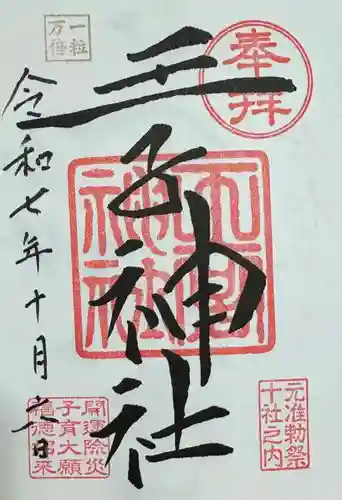 奉拝
王子神社
王子神社
一粒
万倍
令和七年十月 日
元准勅祭
十社之内
開運除災
子育大願
福徳招来